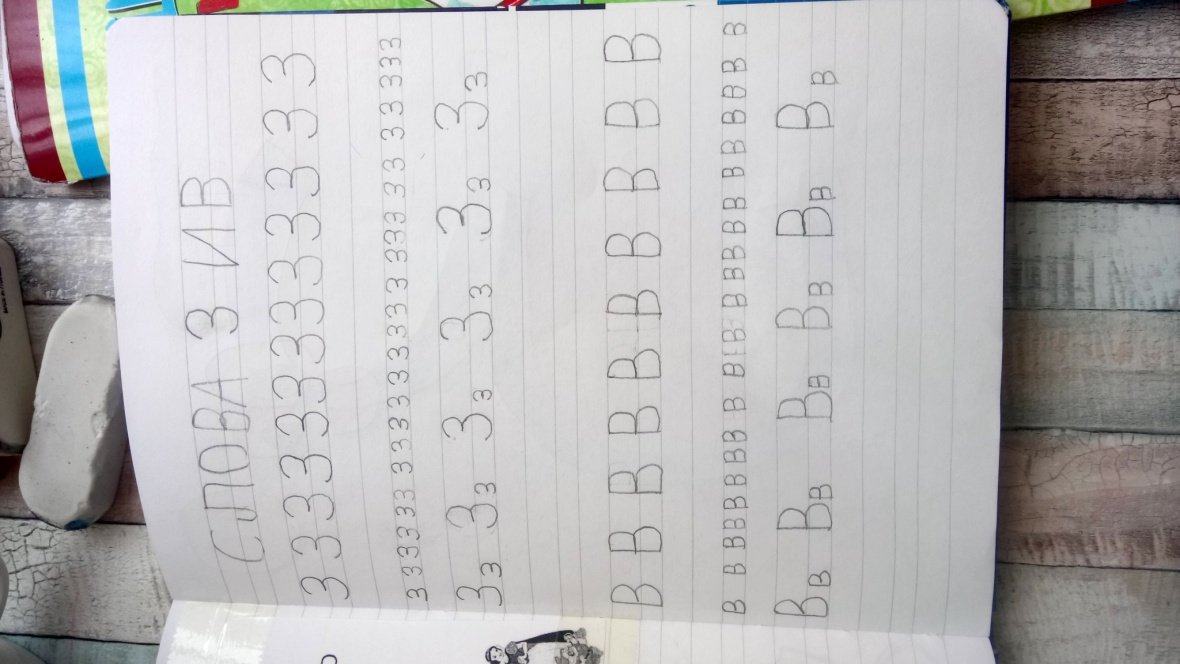 СЛОВА З И В
З З З З З З З З З З З З
з з з з з з з з з з з з з з з з з з з з з з з з з з з з
Зз Зз Зз Зз Зз Зз
В В В В В В В В В В
в в в в в в в в в в в в в в в в в в в в в в в в в
Вв Вв Вв Вв Вв Вв